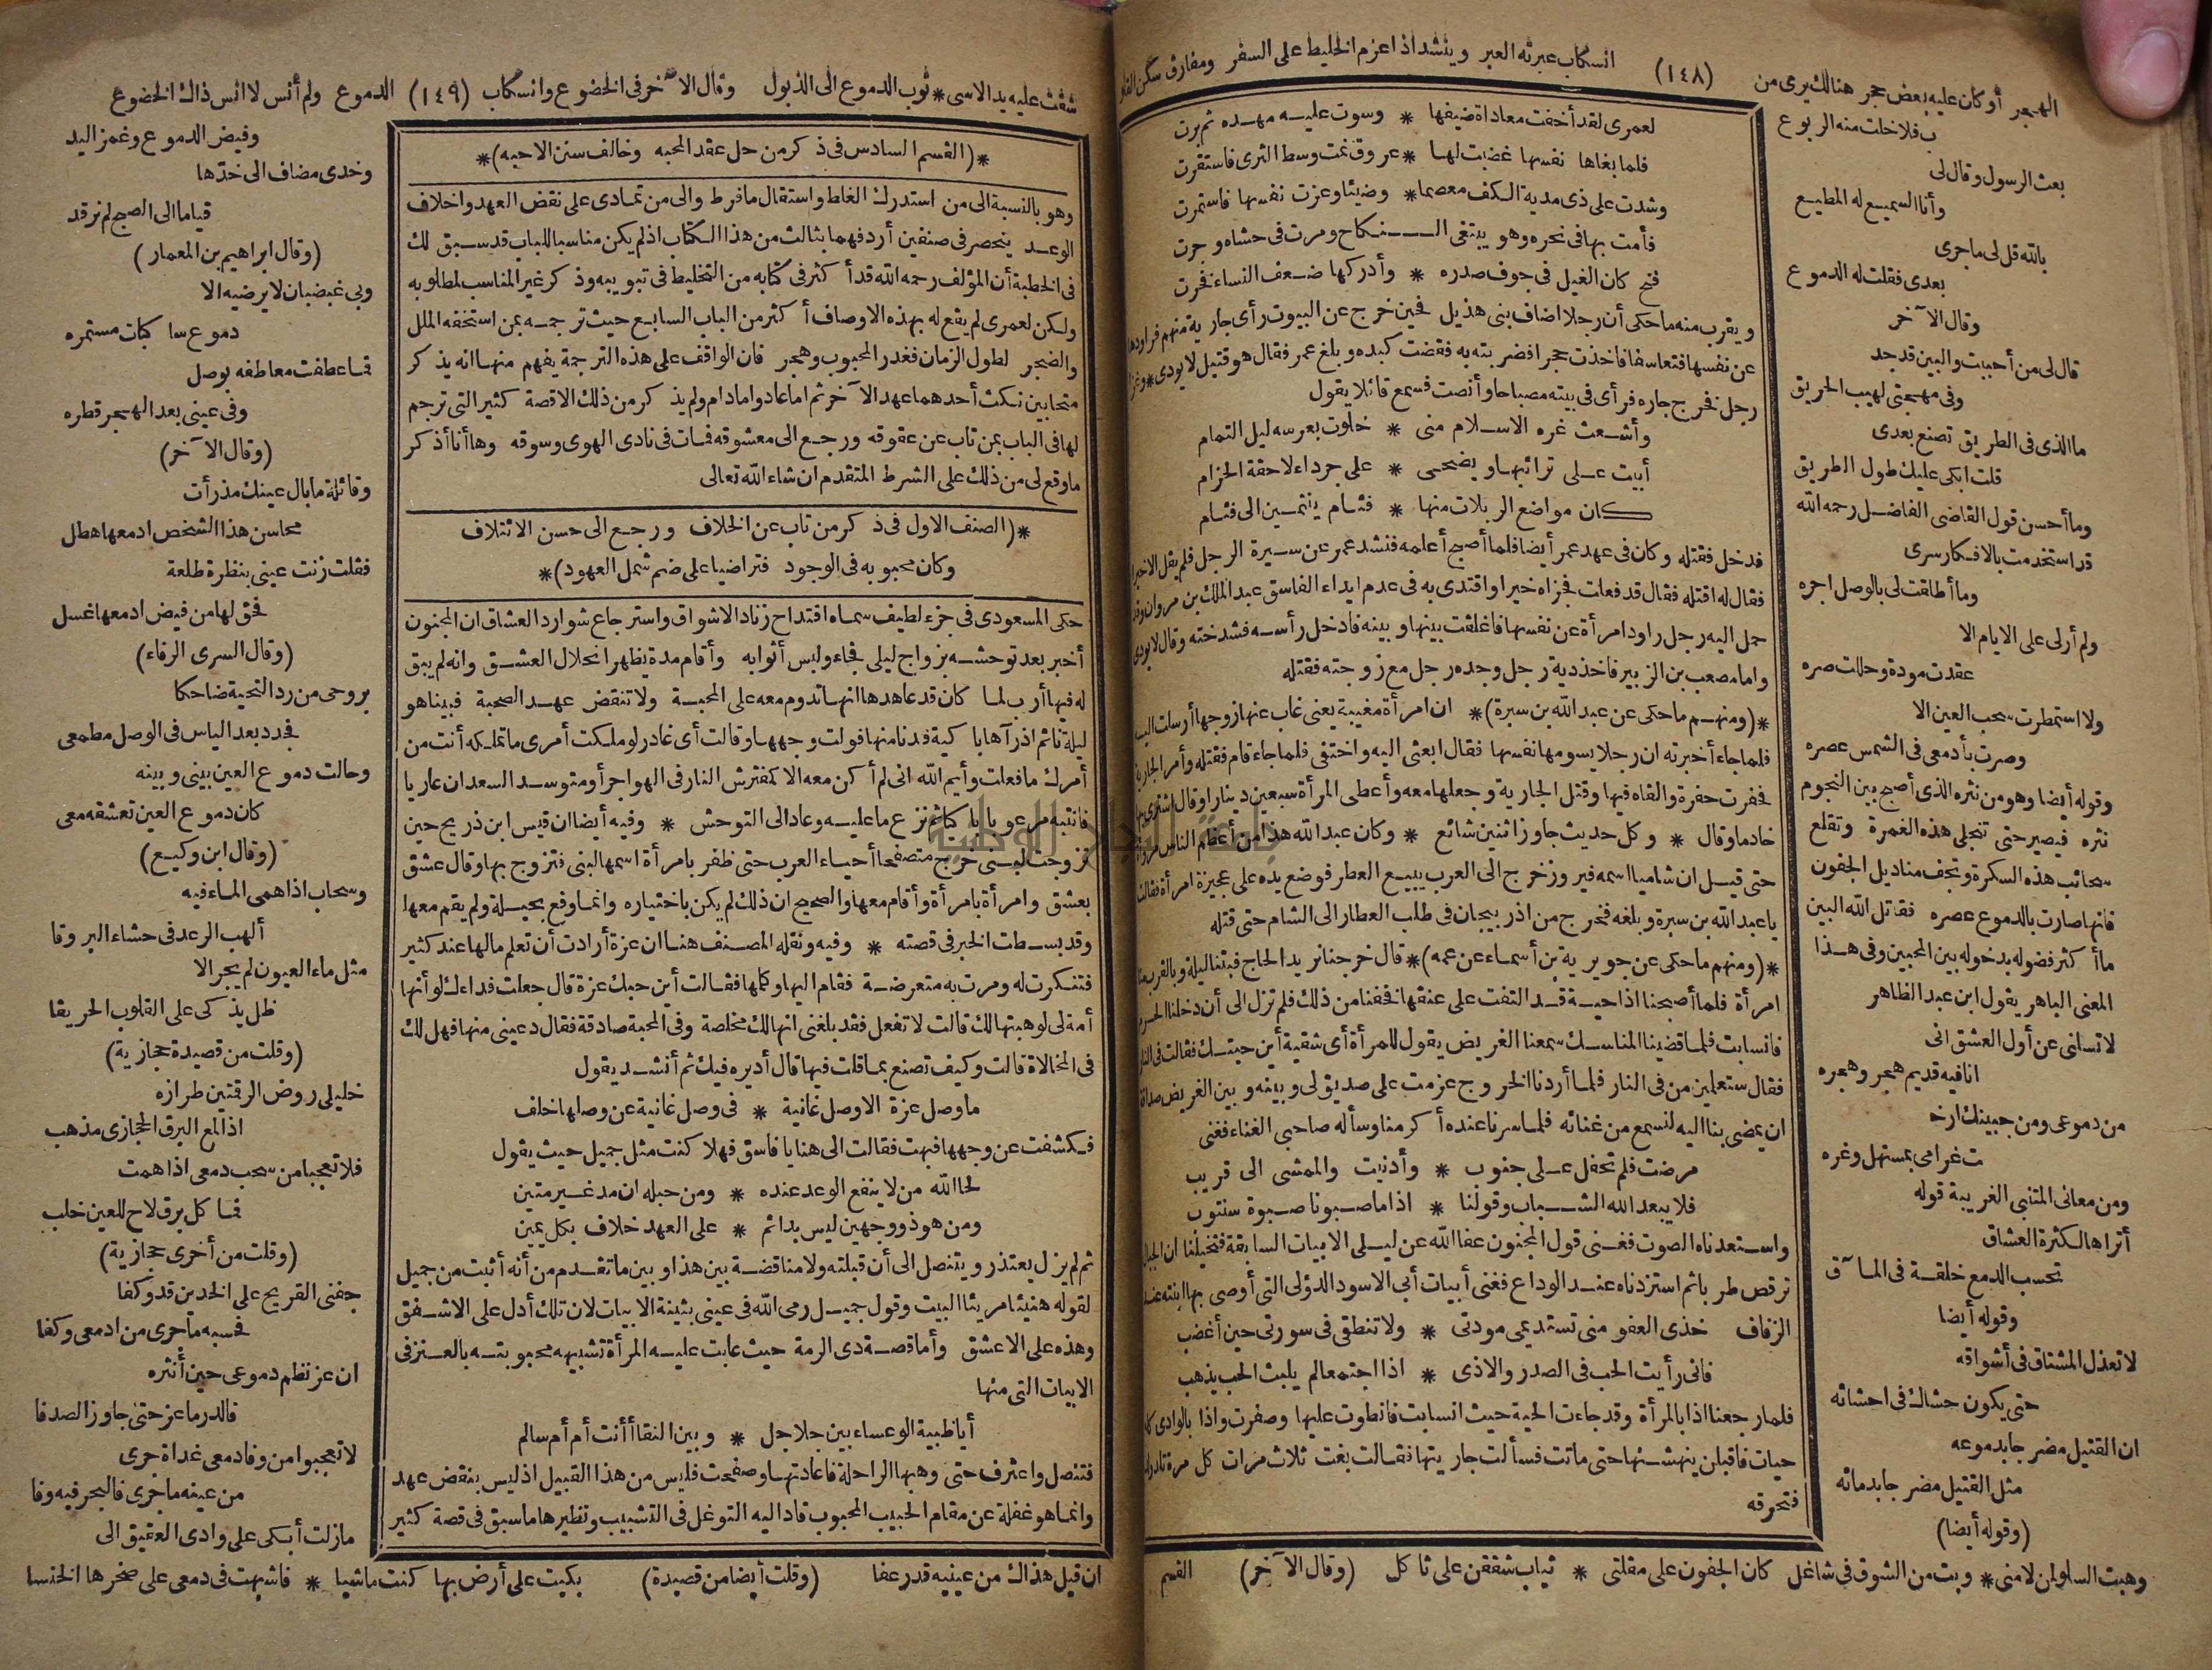 الهجر أو كان عليه بعض حجر هنالك يرى من (١٤٨) انسكاب عبرته العبر وينشد اذا عزم الخليط على السفر ومفارق سكن
ب فلا خلت منه الربوع
بعث الرسول وقال لى
وأنا السميع له المطيع
بالله قل لى ما جرى
بعدى فقلت له الدموع
وقال الآخر
قال لى من أحببت والبين قد جد
وفى مهجتى لهيب الحريق
ما الذى فى الطريق تصنع بعدى
قلت ابكى عليك طول الطريق
وما أحسن قول القاضى الفاضل رحمه الله
قد استخدمت بالافكار سرى
وما أطلقت لى بالوصل اجره
ولم أر لى على الايام الا
عقدت مودة وحلات صره
ولا استمطرت سحب العين الا
وصرت بأدمعى فى الشمس عصره
وقوله أيضا وهو من نثره الذى أصبح بين النجوم
نثره فيصير حتى تنجلى هذه الغمرة وتقلع
سحائب هذه السكرة وتجف مناديل الجفون
فانها صارت بالدموع عصره فقاتل الله البين
ما أكثر فضوله بدخوله بين المحبين وفى هذا
المعنى الباهر يقول ابن عبد الظاهر
لا تسلنى عن أول العشق انى
انا فيه قديم هجر وهجره
من دموعى ومن جبينك ارخ
ت غرامى بمستهل وغره
ومن معانى المتنبى الغريبة قوله
أتراها لكثرة العشاق
تحسب الدمع خلقة فى المآق
وقوله أيضا
لا تعذل المشتاق فى أشواقه
حتى يكون حشاك فى احشائه
ان القتيل مضرجا بدموعه
مثل القتيل مضرجا بدمائه
(وقوله أيضا)
وهبت السلو لمن لامنى * وبت من الشوق فى شاغل كان الجفون على مقلتى * ثياب شققن على ثاكل (وقال الآخر) القسم
لعمرى لقد أخفت معاداة ضيفها * وسوت عليه مهده ثم برت
فلما بغاها نفسها غضبت لها * عروق نمت وسط الثرى فاستقرت
وشدت على ذى مدية الكف معصما * وضيئا وعزت نفسها فاستمرت
فأمت بها فى نحره وهو يبتغى الـنكاح ومرت فى حشاه وجرت
فتج كان الغيل فى جوف صدره * وأدركها ضعف النساء فخرت
ويقرب منه ما حكى أن رجلا اضاف بنى هذيل فحين خرج عن البيوت رأى جارية منهم فراودها
عن نفسها فتعاسفا فاخذت حجرا فضربته به فقضت كبده وبلغ عمر فقال هو قتيل لا يودى
رجل فخرج جاره فرأى فى بيته مصباحا وأنصت فسمع قائلا يقول
وأشعث غره الاسلام منى * خلوت بعرسه ليل التمام
أبيت على ترائبها ويضحى * على جرداء لاحقة الحزام
كان مواضع الربلات منها * فئام ينتمين الى فئام
فدخل فقتله وكان فى عهد عمر أيضا فلما أصبح أعلمه فنشد عمر عن سيرة الرجل فلم يقل الا خيرا
فقال له اقتله فقال قد فعلت فجزاه خيرا واقتدى به فى عدم ايداء الفاسق عبد الملك بن مروان وقد
حمل اليه رجل راود امرأة عن نفسها فاغلقت بينها وبينه فادخل رأسه فشدخته وقال لا يودى
واما مصعب بن الزبير فاخذ دية رجل وجده رجل مع زوجته فقتله
*(ومنهم ما حكى عن عبد الله بن سبرة)* ان امرأة مغيبة يعنى غاب عنها زوجها أرسلت اليه
فلما جاء أخبرته ان رجلا يسومها نفسها فقال ابعثى اليه واختفى فلما جاء قام فقتله وأمر الجارية
فحفرت حفرة والقاه فيها وقتل الجارية وجعلها معه وأعطى المرأة سبعين دينارا وقال اشترى بها
خادما وقال * وكل حديث جاوز اثنين شائع * وكان عبد الله هذا من أعظم الناس
حتى قيل ان شاميا اسمه فيروز خرج الى العرب يبيع العطر فوضع يده على عجيزة امرأة فقالت
يا عبد الله بن سبرة وبلغه فخرج من اذربيجان فى طلب العطار الى الشام حتى قتله
*(ومنهم ما حكى عن جويرية بن أسماء عن عمه)* قال خرجنا نريد الحاج فبتنا ليلة وبالقرب منا
امرأة فلما أصبحنا اذا حية قد التفت على عنقها فخفنا من ذلك فلم تزل الى أن دخلنا الحرم
فانسابت فلما قضينا المناسك سمعنا الغريض يقول للمرأة أى شقية أين حيتك فقالت فى النار
فقال ستعلمين من فى النار فلما أردنا الخروج عزمت على صديق لى وبينه وبين الغريض صداقة
ان يمضى بنا اليه لنسمع من غنائه فلما سرنا عنده أكرمنا وسأله صاحبى الغناء فغنى
مرضت فلم تحفل على جنوب * وأدنيت والممشى الى قريب
فلا يبعد الله الشباب وقولنا * اذا ما صبونا صبوة سنتوب
واستعدناه الصوت فغنى قول المجنون عفا الله عن ليلى الابيات السابقة فتخيلنا ان الجبال
ترقص طربا ثم استزدناه عند الوداع فغنى أبيات أبى الاسود الدؤلى التى أوصى بها ابنته عند
الزفاف خذى العفو منى تستديمى مودتى * ولا تنطقى فى سورتى حين أغضب
فانى رأيت الحب فى الصدر والاذى * اذا اجتمعا لم يلبث الحب يذهب
فلما رجعنا اذا بالمرأة وقد جاءت الحية حيث انسابت فانطوت عليها وصفرت واذا بالوادى كله
حيات فاقبلن ينهشنها حتى ماتت فسألت جاريتها فقالت بغت ثلاث مرات كل مرة تلد ولدا
فتحرقه
شقت عليه يد الاسى * ثوب الدموع الى الذيول وقال الآخر فى الخضوع وانسكاب (١٤٩) الدموع ولم أنس لا انس ذاك الخضوع
وفيض الدموع وغمز اليد
وخدى مضاف الى خدها
قياما الى الصبح لم نرقد
(وقال ابراهيم بن المعمار)
وبى غيضبان لا يرضيه الا
دموع ساكبات مستمره
فما عطفت معاطفه بوصل
وفى عينى بعد الهجر قطره
(وقال الآخر)
وقائلة ما بال عينك مذ رأت
محاسن هذا الشخص ادمعها هطل
فقلت زنت عينى بنظرة طلعة
فحق لها من فيض ادمعها غسل
(وقال السرى الرفاء)
بروحى من رد التحية ضاحكا
فجدد بعد الياس فى الوصل مطمعى
وحالت دموع العين بينى وبينه
كان دموع العين تعشقه معى
(وقال ابن وكيع)
وسحاب اذا همى الماء فيه
ألهب الرعد فى حشاء البروقا
مثل ماء العيون لم يجر الا
ظل يذكى على القلوب الحريقا
(وقلت من قصيدة حجازية)
خليلى روض الرقتين طرازه
اذا لمع البرق الحجازى مذهب
فلا تعجبا من سحب دمعى اذا همت
فما كل برق لاح للعين خلب
(وقلت من أخرى حجازية)
جفنى القريح على الخدين قد وكفا
فحسبه ما جرى من ادمعى وكفا
ان عز نظم دموعى حين أنثره
فالدر ما عز حتى جاوز الصدفا
لا تعجبوا من وفا دمعى غداة جرى
من عينه ما خرى فالبحر فيه وفا
ما زلت أبكى على وادى العقيق الى
ان قيل هذاك من عينيه قد رعفا (وقلت أيضا من قصيدة) بكيت على أرض بها كنت ماشيا * فاشبهت فى دمعى على صخرها الخنسا
*(القسم السادس فى ذكر من حل عقد المحبه وخالف سنن الاحبه)*
وهو بالنسبة الى من استدرك الغلط واستقال ما فرط والى من تمادى على نقض العهد واخلاف
الوعد ينحصر فى صنفين أردفهما بثالث من هذا الكتاب اذ لم يكن مناسبا للباب قد سبق لك
فى الخطبة أن المؤلف رحمه الله قد أكثر فى كتابه من التخليط فى تبويبه وذكر غير المناسب لمطلوبه
ولكن لعمرى لم يقع له بهذه الاوصاف أكثر من الباب السابع حيث ترجمه بمن استخفه الملل
والضجر لطول الزمان فغدر المحبوب وهجر فان الواقف على هذه الترجمة يفهم منها انه يذكر
متحابين نكث أحدهما عهد الآخر ثم اما عادوا ما دام ولم يذكر من ذلك الا قصة كثير التى ترجم
لها فى الباب بمن تاب عن عقوقه ورجع الى معشوقه فمات فى نادى الهوى وسوقه وها أنا أذكر
ما وقع لى من ذلك على الشرط المتقدم ان شاء الله تعالى
*(الصنف الاول فى ذكر من تاب عن الخلاف ورجع الى حسن الائتلاف
وكان محبوبه فى الوجود فتراضيا على ضم شمل العهود)*
حكى المسعودى فى جزء لطيف سماه اقتداح زناد الاشواق واسترجاع شوارد العشاق ان المجنون
أخبر بعد توحشه بزواج ليلى فجاء ولبس أثوابه وأقام مدة يظهر انحلال العشق وانه لم يبق
له فيها أرب لما كان قد عاهدها انها تدوم معه على المحبة ولا تنقض عهد الصحبة فبينا هو
ليلة نائم اذ رآها باكية فدنا منها فولت وجهها وقالت أى غادر لو ملكت أمرى ما تملكه أنت من
أمرك ما فعلت وأيم الله انى لم أكن معه الا كمفترش النار فى الهواجر أو متوسد السعدان عاريا
فانتبه مرعوبا باكيا ثم نزع ما عليه وعاد الى التوحش * وفيه أيضا ان قيس ابن ذريح حين
تزوجت لبنى خرج متصفحا أحياء العرب حتى ظفر بامرأة اسمها لبنى فتزوج بها وقال عشق
بعشق وامرأة بامرأة وأقام معها والصحيح ان ذلك لم يكن باختياره وانما وقع بحيلة ولم يقم معها
وقد بسطت الخبر فى قصته * وفيه ونقله المصنف هنا ان عزة أرادت أن تعلم ما لها عند كثير
فتنكرت له ومرت به متعرضة فقام اليها وكلها فقالت أين حبك عزة قال جعلت فداءك لو أنها
أمة لى لوهبتها لك قالت لا تفعل فقد بلغنى انها لك مخلصة وفى المحبة صادقة فقال دعينى منها فهل لك
فى المخالاة قالت وكيف تصنع بما قلت فيها قال أديره فيك ثم أنشد يقول
ما وصل عزة الا وصل غانية * فى وصل غانية عن وصلها خلف
فكشفت عن وجهها فبهت فقالت الى هنا يا فاسق فهلا كنت مثل جميل حيث يقول
لحا الله من لا ينفع الوعد عنده * ومن حبله ان مد غير متين
ومن هو ذو وجهين ليس بدائم * على العهد خلاف بكل يمين
ثم لم يزل يعتذر ويتنصل الى أن قبلته ولا مناقضة بين هذا وبين ما تقدم من أنه أثبت من جميل
لقوله هنيئا مريئا البيت وقول جميل رمى الله فى عينى بثينة الابيات لان تلك أدل على الاشفق
وهذه على الاعشق وأما قصة ذى الرمة حيث عابت عليه المرأة تشبيهه محبوبته بالعنز فى
الابيات التى منها
أيا ظبية الوعساء بين جلاجل * وبين النقا أأنت أم أم سالم
فتنصل واعترف حتى وهبها الراحلة فاعادتها وصفحت فليس من هذا القبيل اذ ليس بنقض عهد
وانما هو غفلة عن مقام الحبيب المحبوب قاد اليه التوغل فى التشبيب ونظيرها ما سبق فى قصة كثير